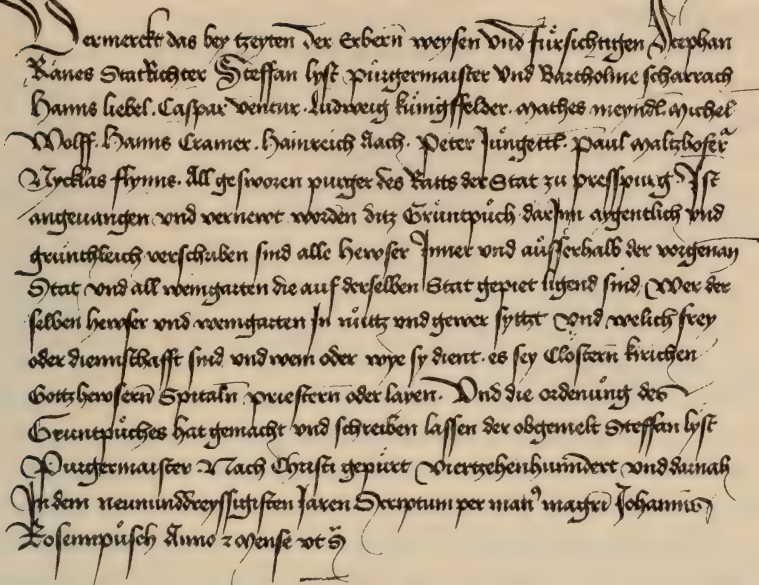 Vermerckt das bey tzeyten der Erbern̄ weysen vnd fürsichtigen Stephan
Ranes StatRichter Steffan lyst purgermaister vnd Bartholme scharrach
Hanns liebel · Caspar ventur · Ludweig kunigsfelder · Mathes meyndl · Michel
Wolff · Hanns Cramer · Hainreich Aach · Peter Jungettl · Paul Maltzhofer
Nycklas flynns · All gesworen purger des Ratts der Stat zu presspurg · Ist
angeuangen vnd vernewt worden ditz Gruntpuch darInn aygentlich vnd
grunthleich verschriben sind alle hewser Inner vnd ausserhalb der vorgenan
Stat vnd all weingarten die auf derselben Stat gepiet ligend sind, Wer der
selben hewser vnd weingarten In nutz vnd gewer sytzt vnd welich frey
oder diennschafft sind vnd wem oder wye sy dient · es sey Clostern kirichen
Gottzhewsern̄ Spitaln̄ priestern oder layen · Vnd die ordenung des
Gruntpuches hat gemacht vnd schreiben lassen der obgemelt Steffan lyst
Purgermaister · Nach Christi gepurt viertzehenhundert vnd darnah
In dem newnunddreyssigisten Jaren Scriptum per man⁹ magri Johannis
Rosennpusch Anno z mense vt s̄